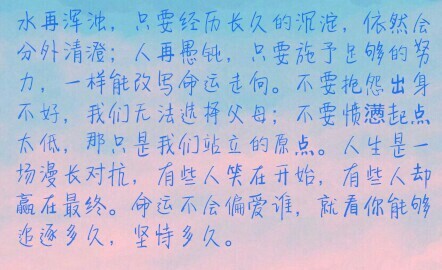 水再浑浊，只要经历长久的沉淀，依然会
分外清澄；人再愚钝，只要施予足够的努
力，一样能改写命运走向。不要抱怨出身
不好，我们无法选择父母；不要愤懑起点
太低，那只是我们站立的原点。人生是一
场漫长对抗，有些人笑在开始，有些人却
赢在最终。命运不会偏爱谁，就看你能够
追逐多久，坚恃多久。